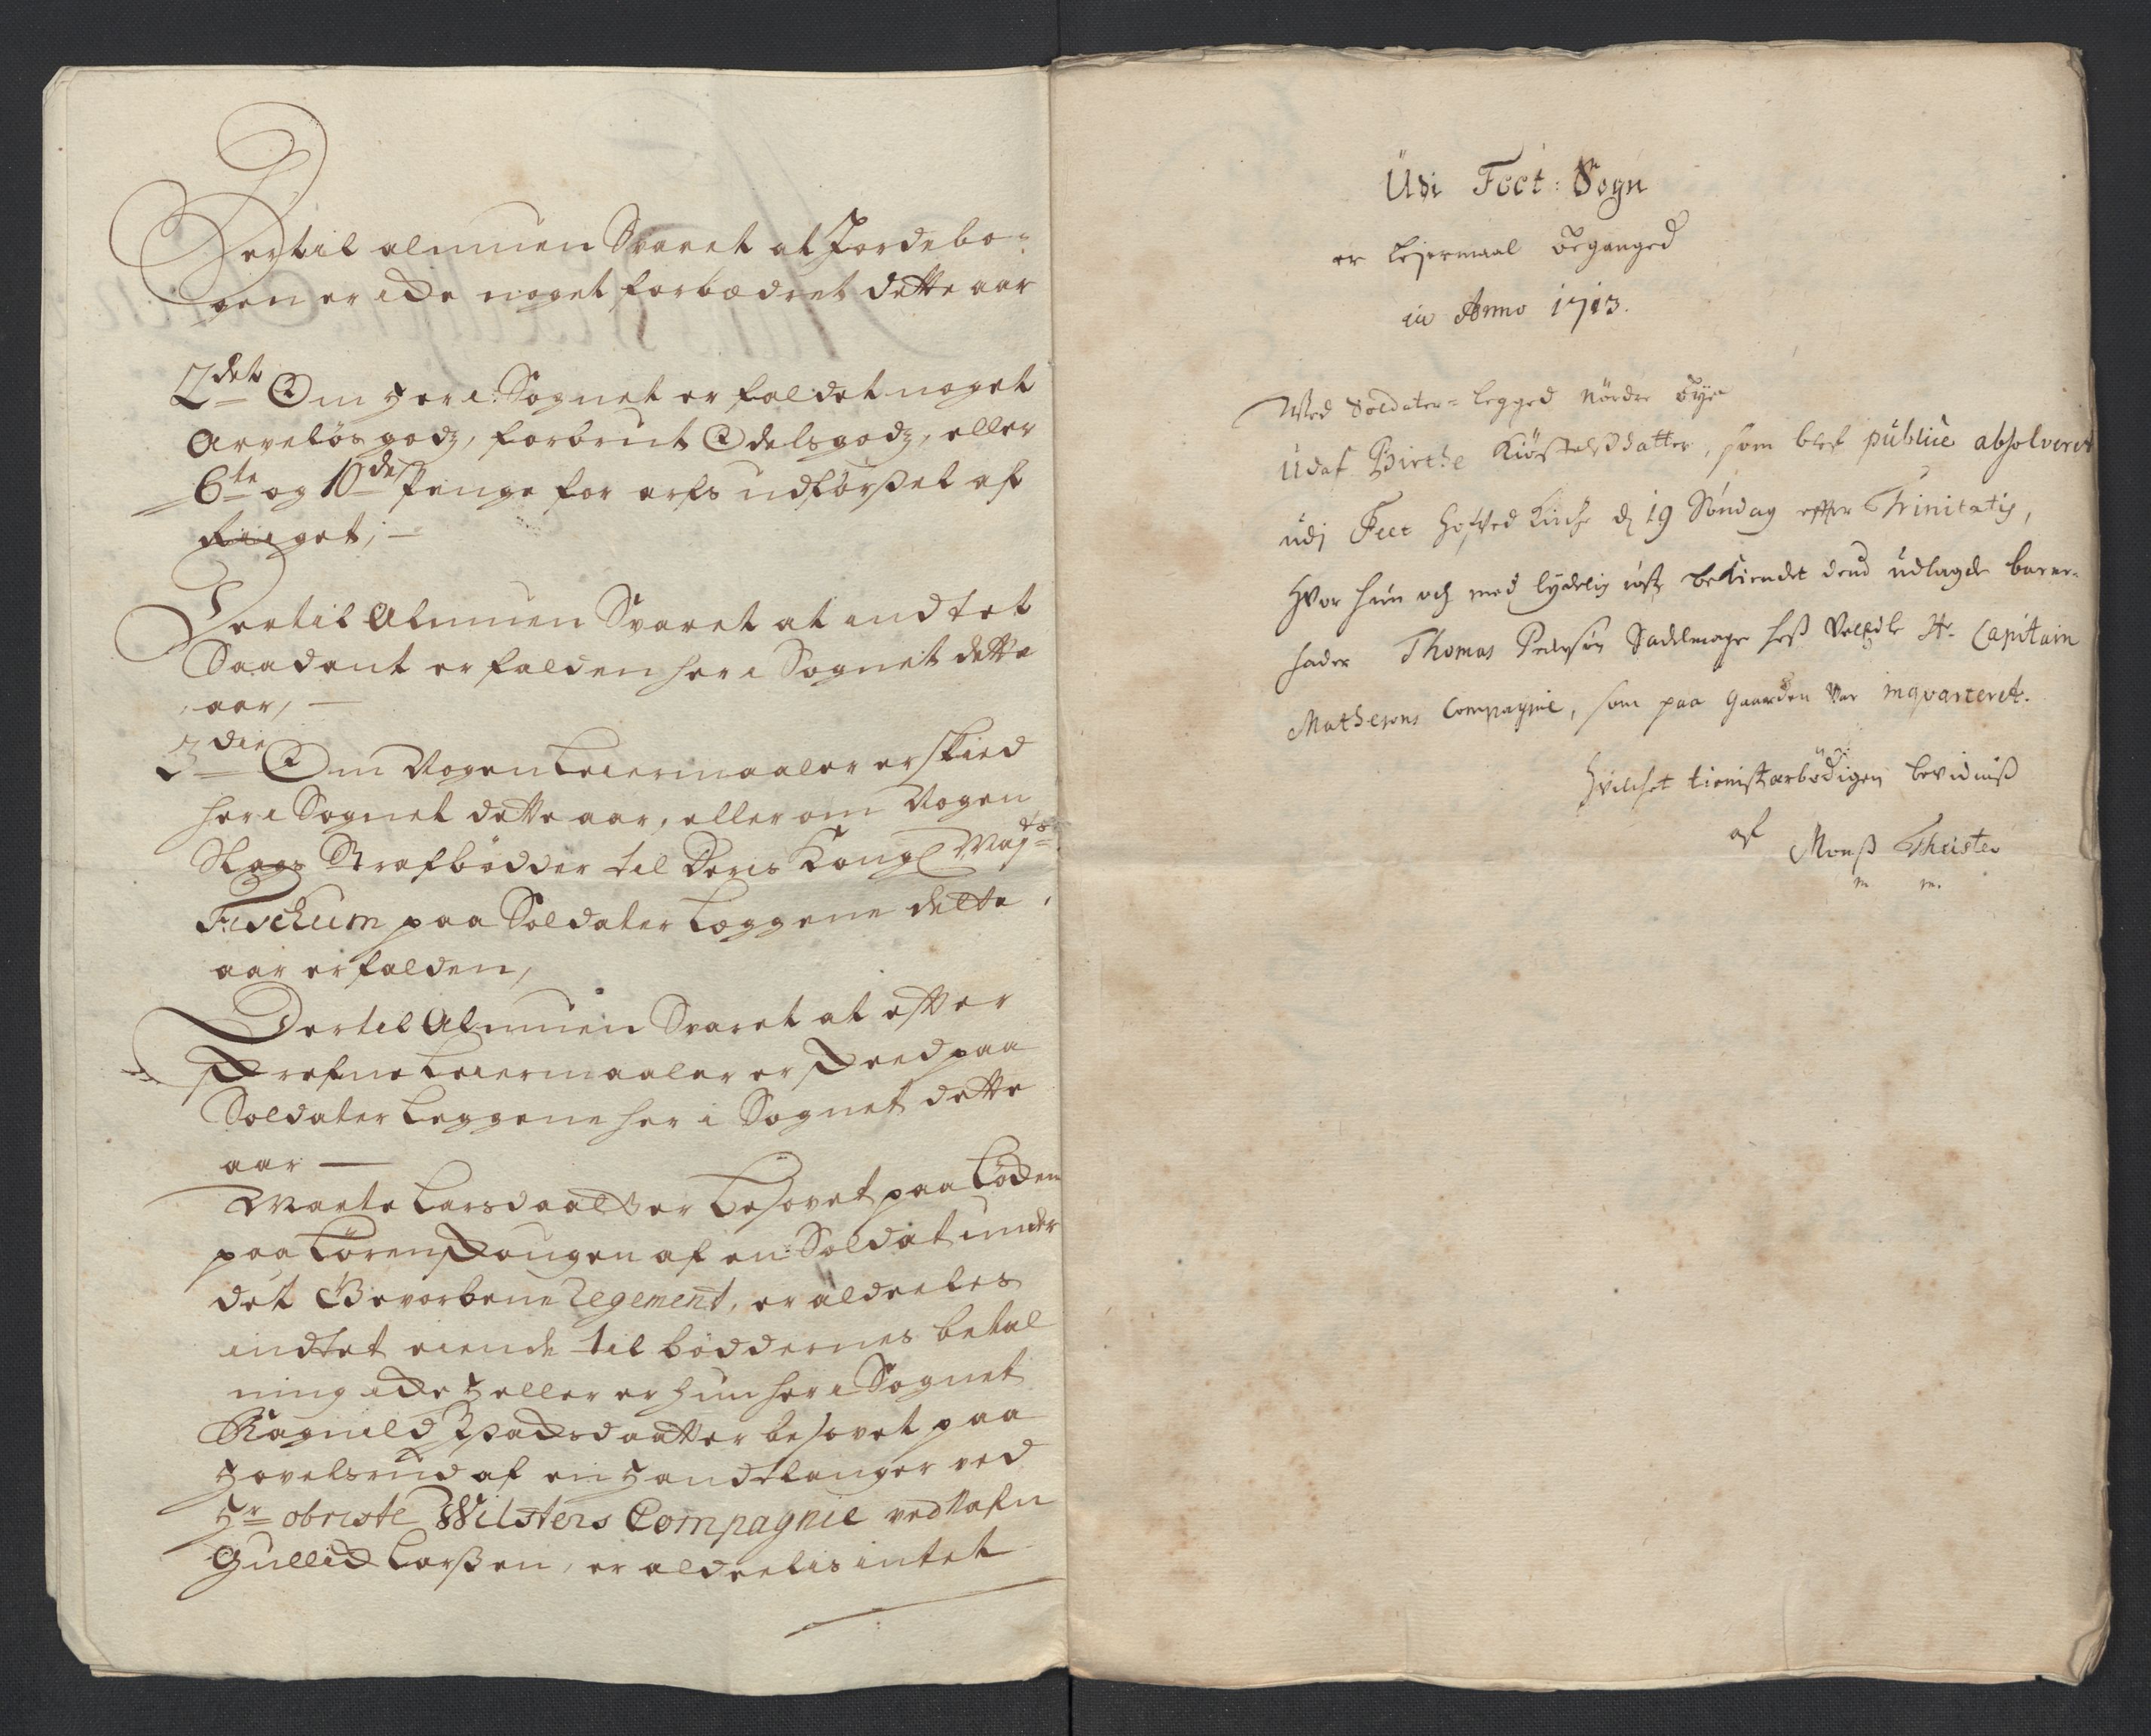 Dertil almuen Svaret at Jordebo-
gen er icke noget forbedret dette aar
2det Om her i Sognet er faldet noget
Arveløs godz, forbrut Odelsgodz, eller
6te og 10de Penge for arfs udførsel af
Riiget;
Dertil Almuen Svaret at indtet
Saadant er falden her i Sognet dette
aar,
3die Om Nogen Leiermaaler er skied
her i Sognet dette aar, eller om Nogen
Slags Strafbødder til Deris Kongl Mayts
Fischum paa Soldater Læggene dette
aar er falden,
Dertil Almuen Svaret at efter
skrefne Leiermaaler er skeed paa
Soldater Leggene her i Sognet dette
aar
Marte Larsdaatter besovet paa
paa af en Soldat under
det Hvervbene Regement, er aldeeles
indtet eiende til bøddernes betal
ning icke heller er hun her i Sognet
Ragnild daatter besovet paa
Hovelsrud af en Handtlanger ved
Hr obriste Wilsters Compagnie ved Nafn
Gullick Larßen, er aldeelis intet
Udi Feet: Sogn
er lejermaal beganged
in Anno 1713.
Wed Soldater-legged Nördre Bÿe
Udaf Birthe Kiöstelsdatter, som blef publice absolveret
udj Feet Hofved Kirche d 19 Söndag efter Trinitatis,
Hvor hun och med lydelig röst bekiendet dend udlagde barne-
fader Thomas Pedersön Sadelmager hoß Velædle Hr Capitain
Mathesons Compagnie, som paa Gaarden Var inqvarteret.
Hvilchet tienistærbödigen bevidniß
af Monß Christen
m m.